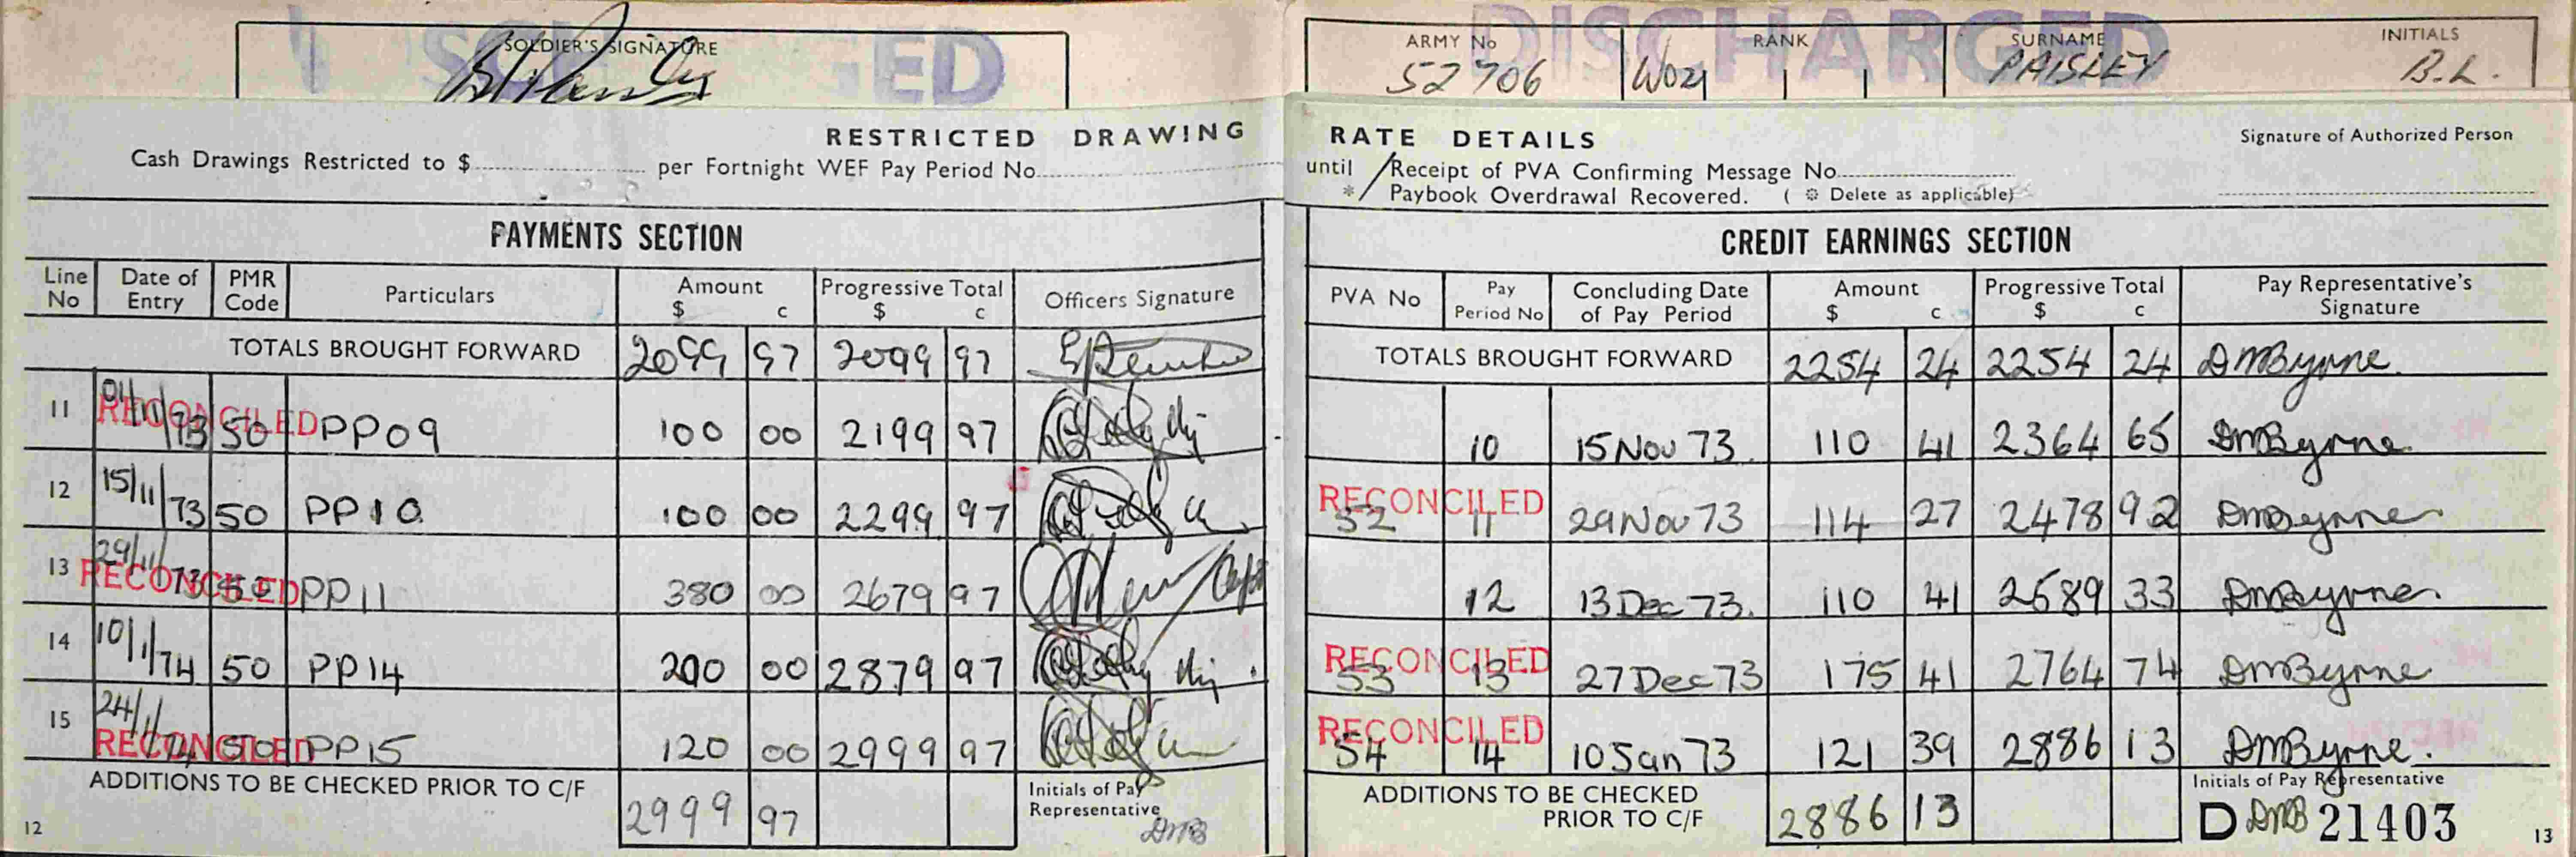 DISCHARGED
SOLDIER'S SIGNATURE
RESTRICTED DRAWING
Cash Drawings Restricted to $ per Fortnight WEF Pay Period No
PAYMENTS SECTION
Line No Date of Entry PMR Code Particulars Amount $ c Progressive Total $ c Officers Signature
TOTALS BROUGHT FORWARD 2099 97 2099 97
11 01/11/73 50 PP09 100 00 2199 97
RECONCILED
12 15/11/73 50 PP10 100 00 2299 97
13 29/11/73 50 PP11 380 00 2679 97
RECONCILED
14 10/1/74 50 PP14 200 00 2879 97
15 24/1/74 50 PP15 120 00 2999 97
RECONCILED
ADDITIONS TO BE CHECKED PRIOR TO C/F 2999 97 Initials of Pay Representative DMB
12
DISCHARGED
ARMY No RANK SURNAME INITIALS
52706 WO2 PAISLEY B.L.
RATE DETAILS
Signature of Authorized Person
until / Receipt of PVA Confirming Message No
* / Paybook Overdrawal Recovered. ( * Delete as applicable)
CREDIT EARNINGS SECTION
PVA No Pay Period No Concluding Date of Pay Period Amount $ c Progressive Total $ c Pay Representative's Signature
TOTALS BROUGHT FORWARD 2254 24 2254 24 DMByrne
10 15 Nov 73 110 41 2364 65 DMByrne
RECONCILED
52 11 29 Nov 73 114 27 2478 92 DMByrne
12 13 Dec 73 110 41 2589 33 DMByrne
RECONCILED
53 13 27 Dec 73 175 41 2764 74 DMByrne
RECONCILED
54 14 10 Jan 73 121 39 2886 13 DMByrne
ADDITIONS TO BE CHECKED PRIOR TO C/F 2886 13 Initials of Pay Representative
D DMB 21403
13